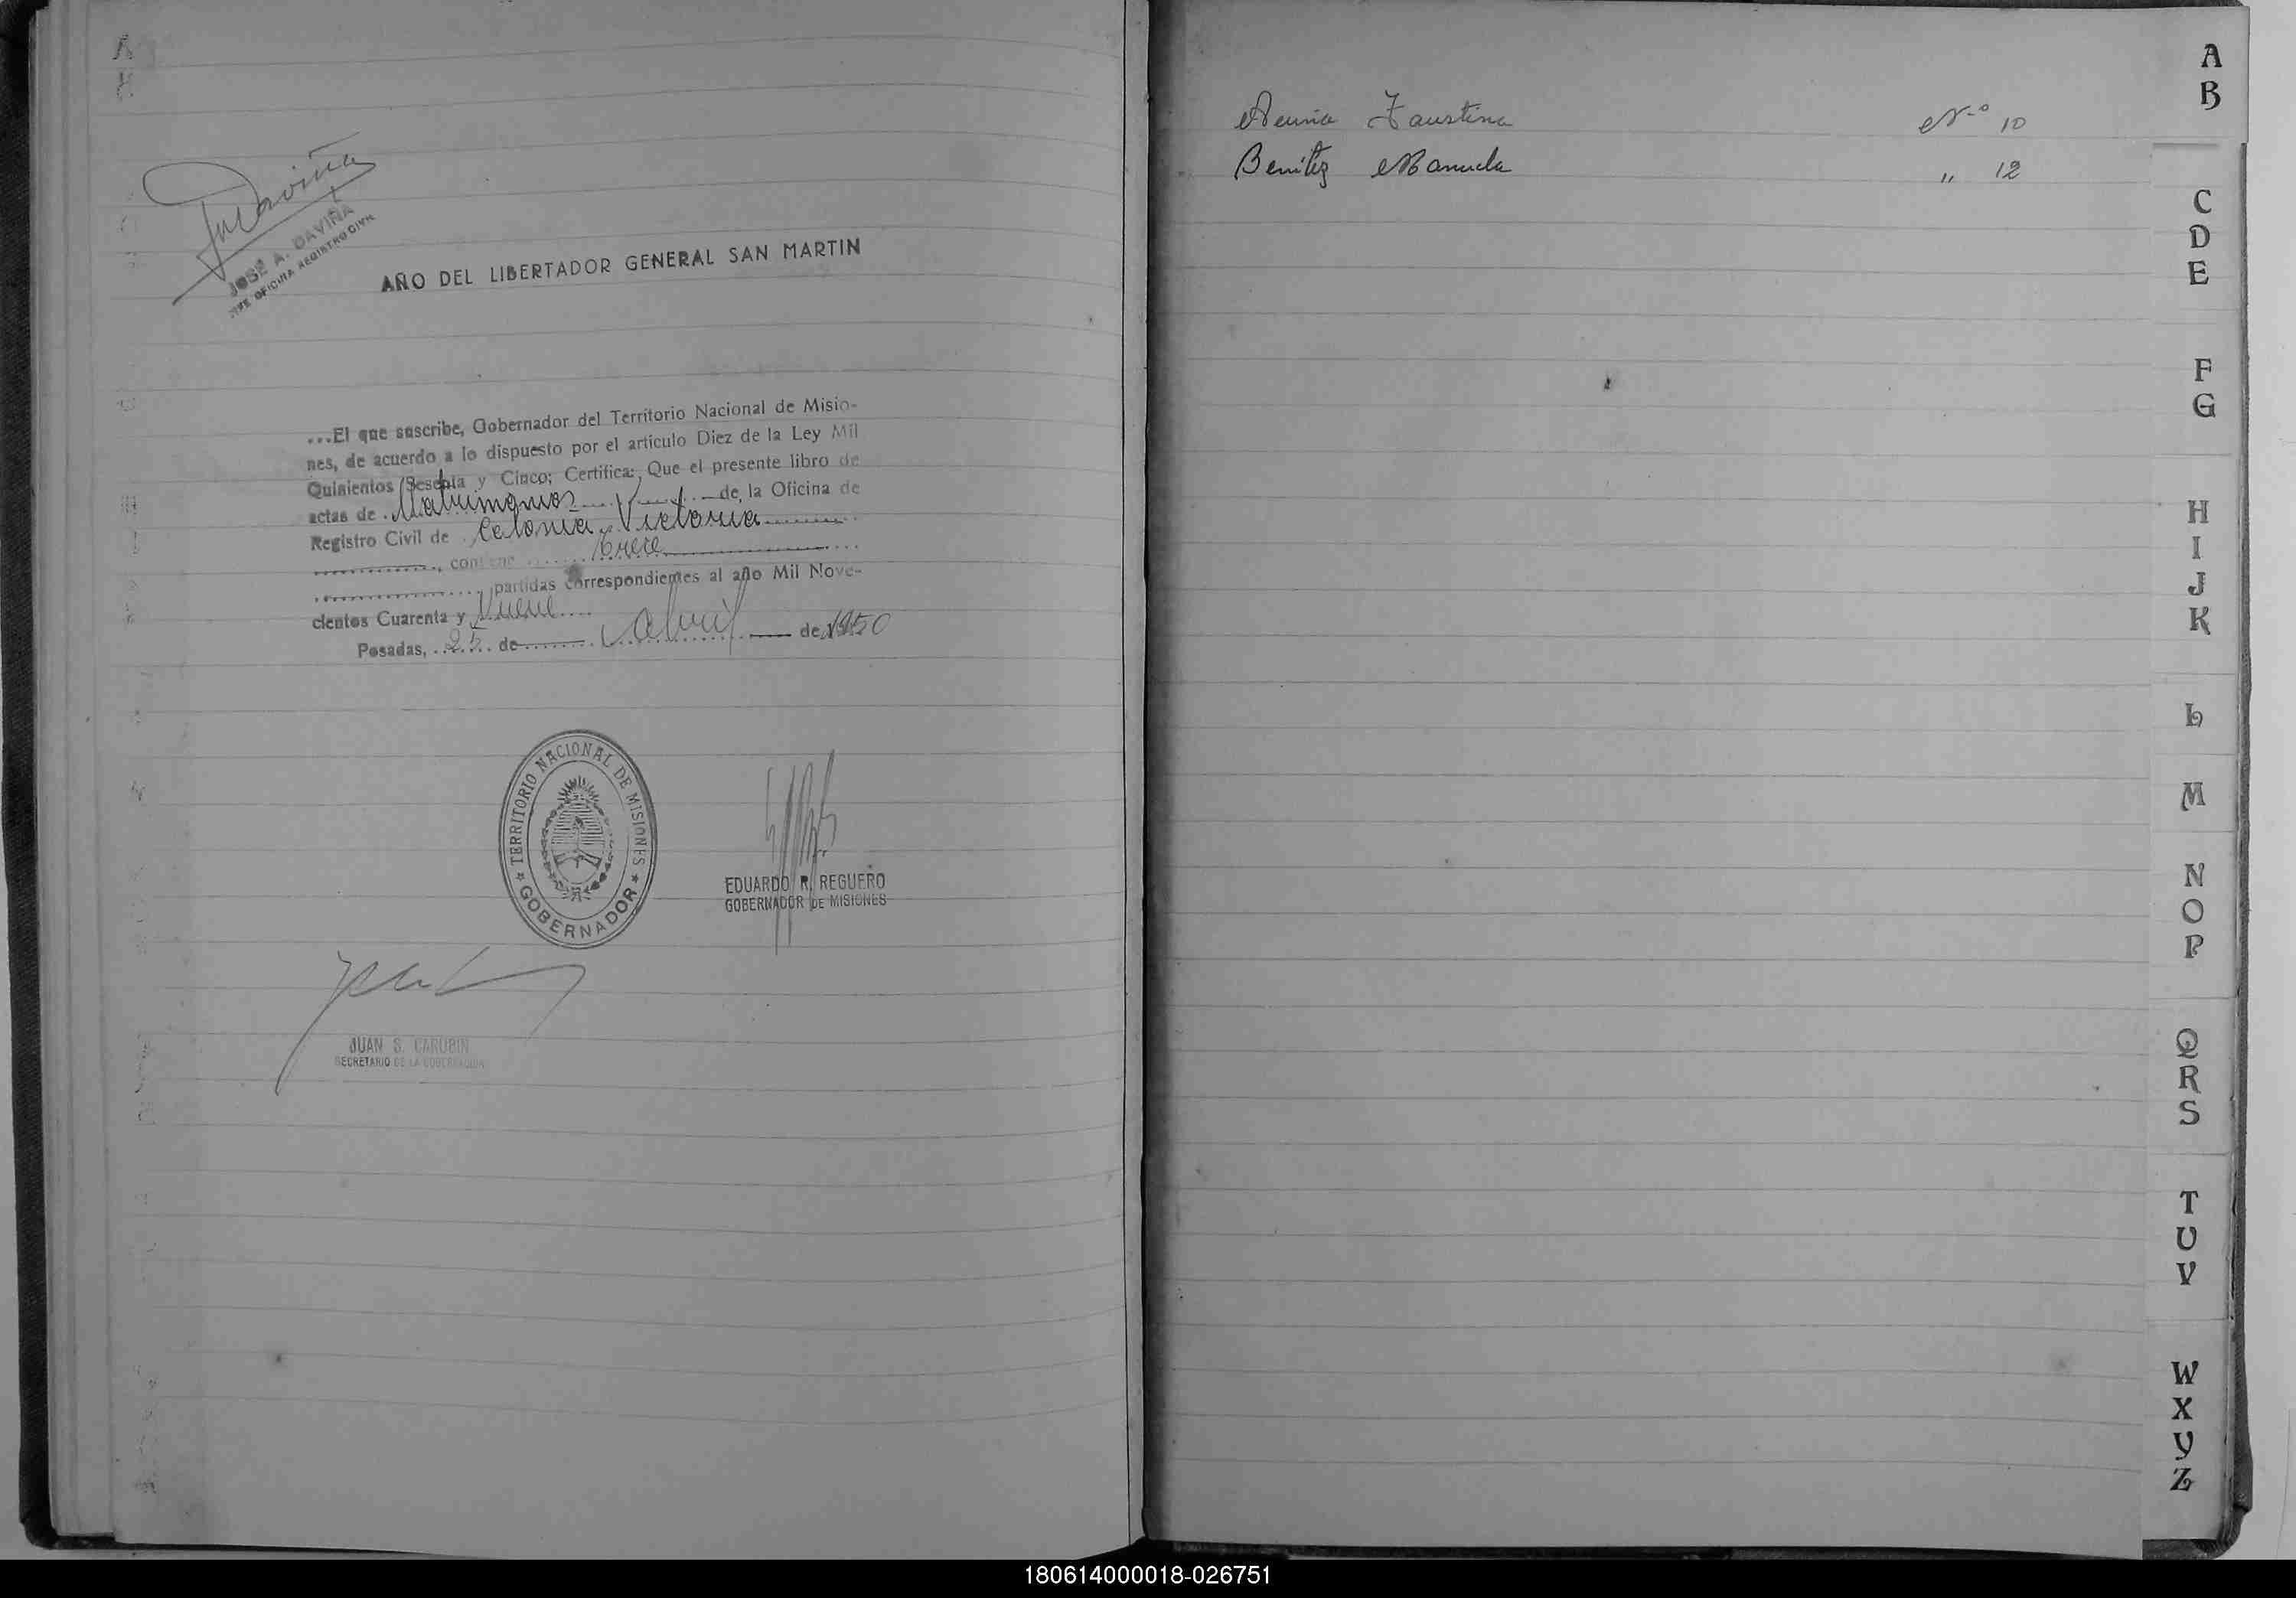 JOSÉ A. DAVIÑA
JEFE OFICINA REGISTRO CIVIL
AÑO DEL LIBERTADOR GENERAL SAN MARTIN
...El que suscribe, Gobernador del Territorio Nacional de Misio-
nes, de acuerdo a lo dispuesto por el artículo Diez de la Ley Mil
Quinientos Sesenta y Cinco; Certifica: Que el presente libro de
actas de Matrimonios de la Oficina de
Registro Civil de Colonia Victoria
, contiene trece
partidas correspondientes al año Mil Nove-
cientos Cuarenta y Nueve
Posadas, 25 de Abril de 1950
TERRITORIO NACIONAL DE MISIONES
GOBERNADOR
EDUARDO R. REGUERO
GOBERNADOR DE MISIONES
JUAN S. CARUBIN
SECRETARIO DE LA GOBERNACION
Acuña Faustina Nº 10
Benitez Manuela " 12
A
B
C
D
E
F
G
H
I
J
K
L
M
N
O
P
Q
R
S
T
U
V
W
X
Y
Z
180614000018-026751